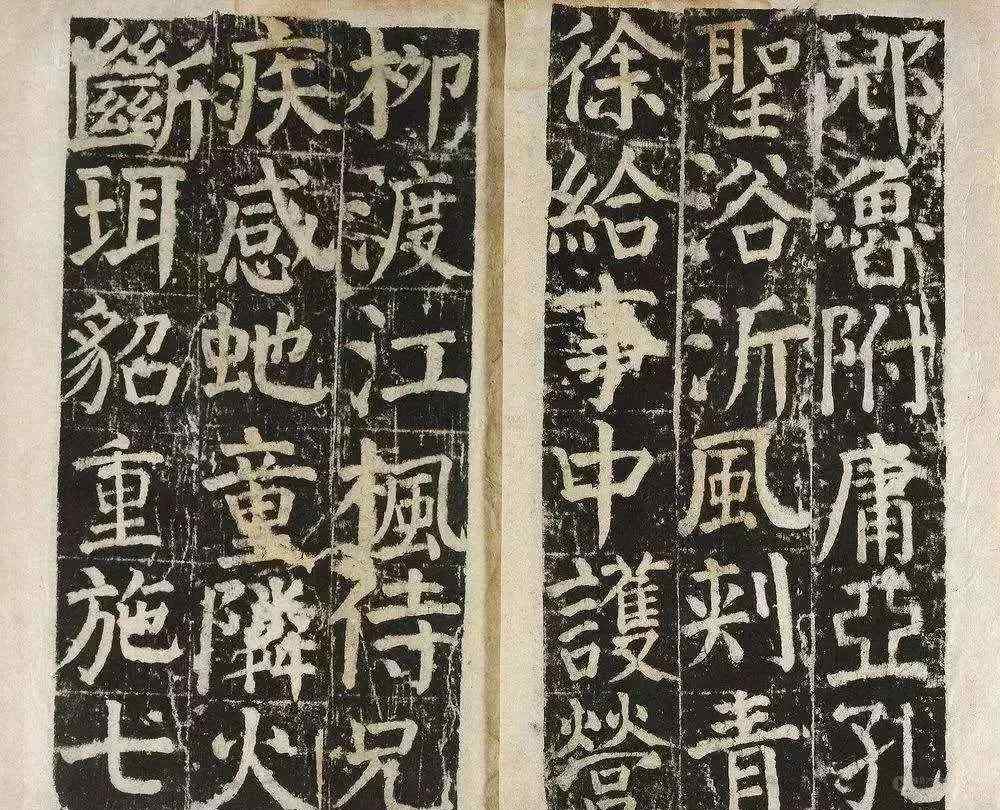 郳魯附庸亞孔
聖浴沂風刺青
徐給事中護營
柳渡江楓侍兄
疾感虵童隣火
斷珥貂重施七